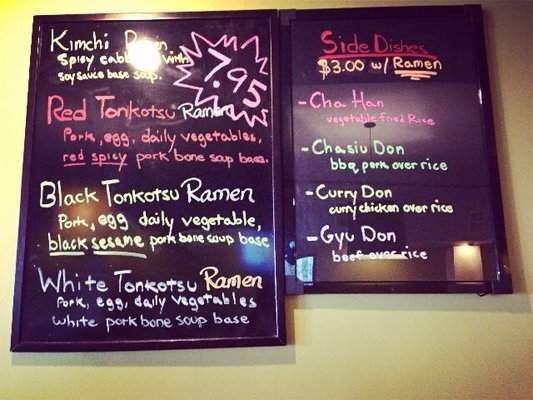 Kimchi Ramen
Spicy cabbage with
soy sauce base soup.
7.95
Red Tonkotsu Ramen
Pork, egg, daily vegetables,
red spicy pork bone soup base.
Black Tonkotsu Ramen
Pork, egg daily vegetable,
black sesame pork bone soup base
White Tonkotsu Ramen
Pork, egg, daily vegetables
white pork bone soup base
Side Dishes
$3.00 w/ Ramen
- Cha Han
vegetable fried Rice
- Chasiu Don
bbq pork over rice
- Curry Don
curry chicken over rice
- Gyu Don
beef over rice